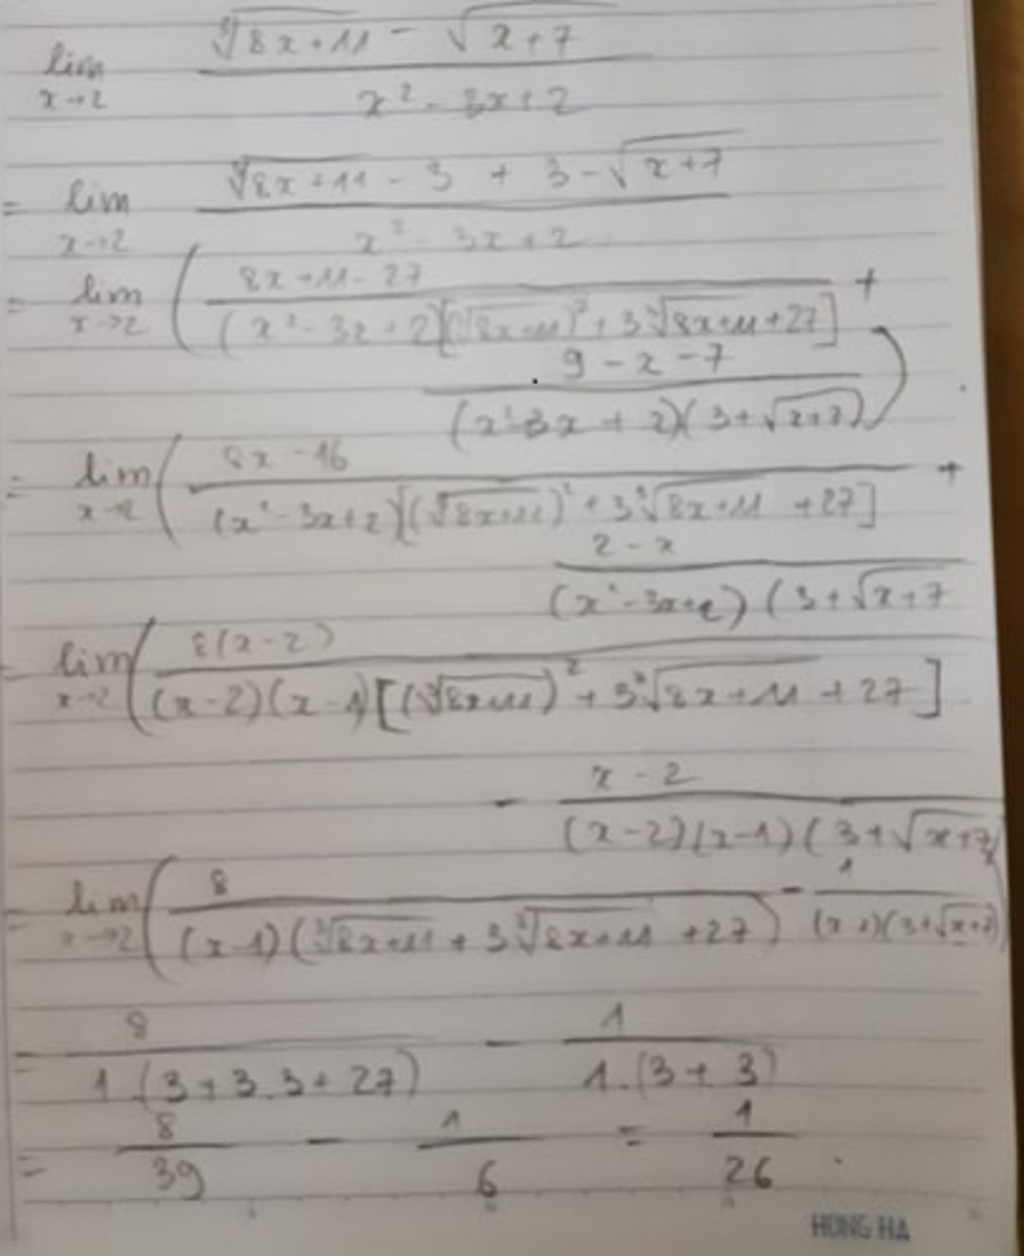 lim x→2 (∛(8x+11) - √(x+7)) / (x² - 3x + 2)
= lim x→2 (∛(8x+11) - 3 + 3 - √(x+7)) / (x² - 3x + 2)
= lim x→2 ( (8x+11-27) / ((x² - 3x + 2)[(∛(8x+11))² + 3∛(8x+11) + 27]) +
(9 - x - 7) / ((x² - 3x + 2)(3 + √(x+7))) )
= lim x→2 ( (8x - 16) / ((x² - 3x + 2)[(∛(8x+11))² + 3∛(8x+11) + 27]) +
(2 - x) / ((x² - 3x + 2)(3 + √(x+7)
= lim x→2 ( 8(x-2) / ((x-2)(x-1)[(∛(8x+11))² + 3∛(8x+11) + 27])
- (x - 2) / ((x-2)(x-1)(3 + √(x+7)))
= lim x→2 ( 8 / ((x-1)(∛(8x+11) + 3∛(8x+11) + 27)) - 1 / ((x-1)(3+√(x+7))) )
= 8 / (1.(3+3.3+27)) - 1 / (1.(3+3))
= 8/39 - 1/6 = 1/26
HONG HA